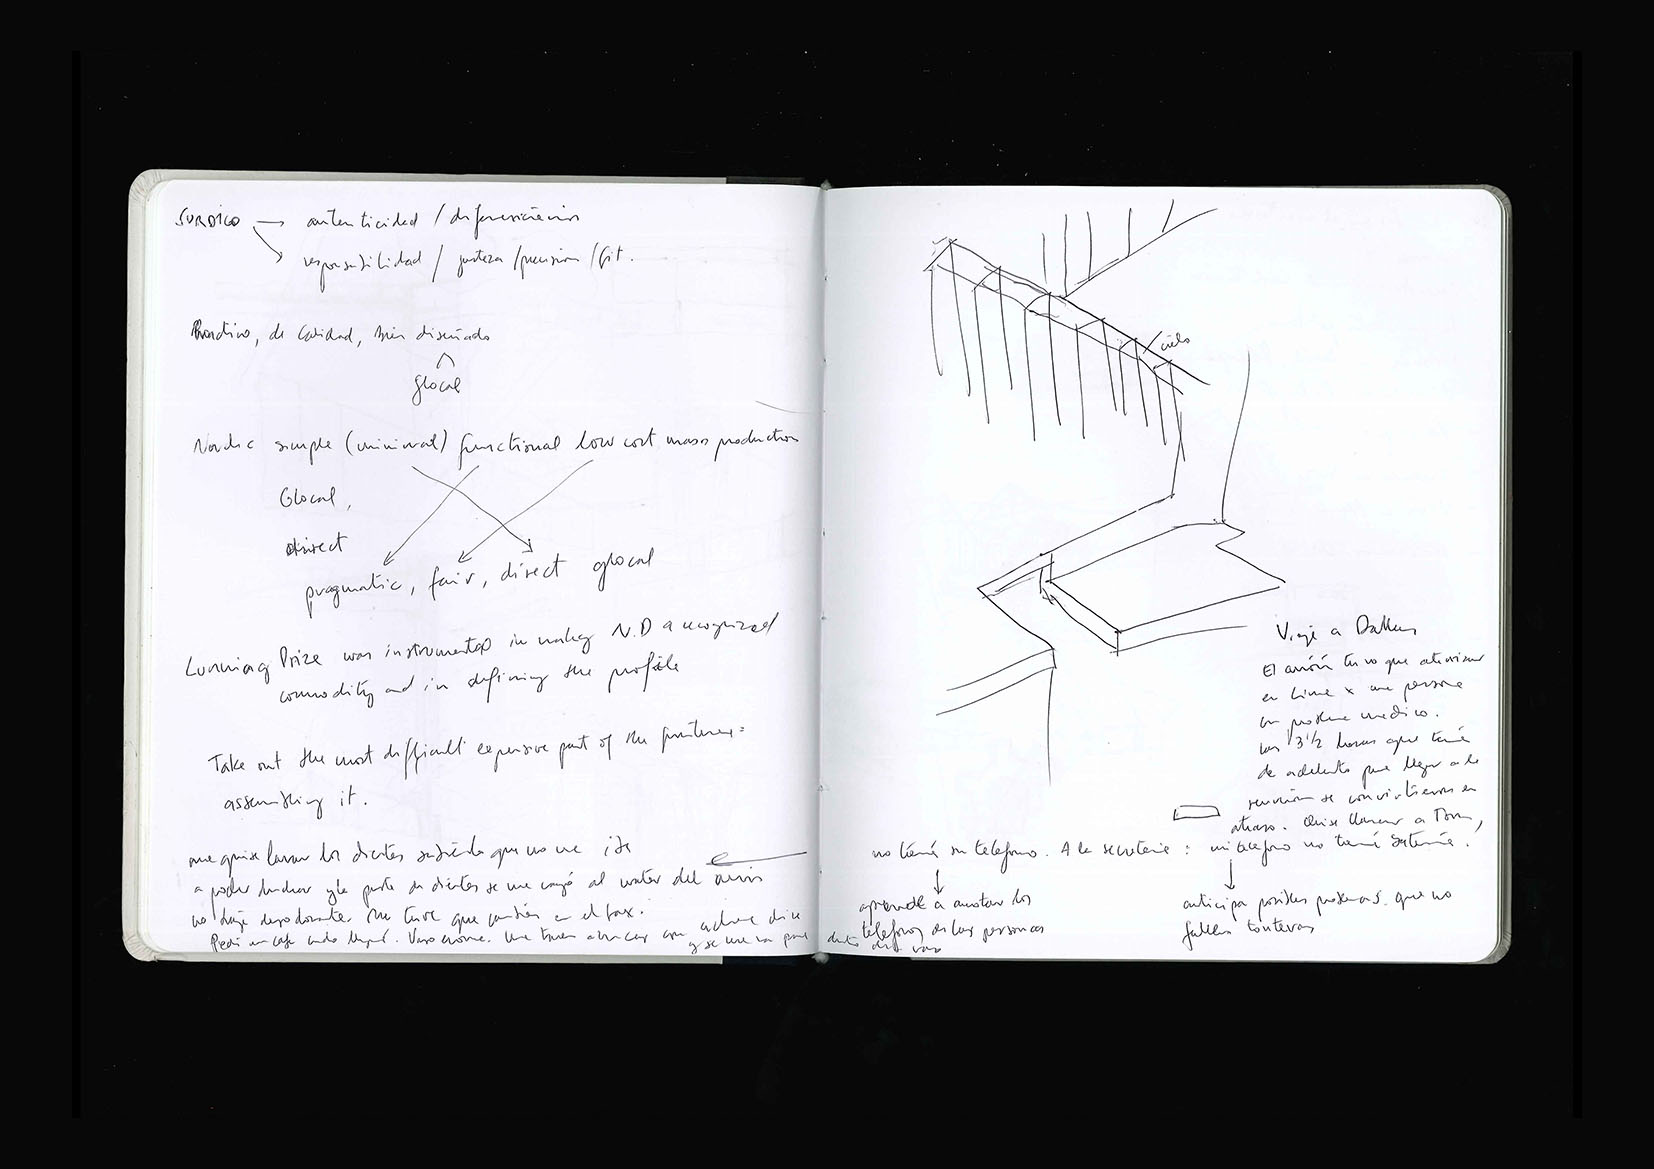 SURDICO → autenticidad / diferenciación
responsabilidad / justeza / precision / fit.
Nordico, de calidad, bien diseñado
glocal
Nordic simple (minimal) functional low cost mass production
Glocal,
direct
pragmatic, fair, direct glocal
Lunning Prize was instrumental in making N.D a recognized
commodity and in defining the profile
Take out the most difficult expensive part of the furniture:
assembling it.
me quise lavar los dientes sabiendo que no me iba
a poder duchar y la pasta de dientes se me cayó al water del avión
no traje desodorante. Me tuve que cambiar en el taxi.
Pedi un cafe cuando llegué. Vaso enorme. Me tuve
y se me va
dentro del vaso
cielo
Viaje a Dallas
El avión tuvo que aterrizar
en Lima x una persona
con problema medico.
Las 3 1/2 horas que tenía
de adelanto para llegar a la
reunión se convirtieron en
atraso. Quise llamar a Tom,
no tenía su telefono. A la secretaria: mi telefono no tenía batería.
aprende a anotar los
telefonos de las personas
anticipa posibles problemas. que no
fallen tonteras